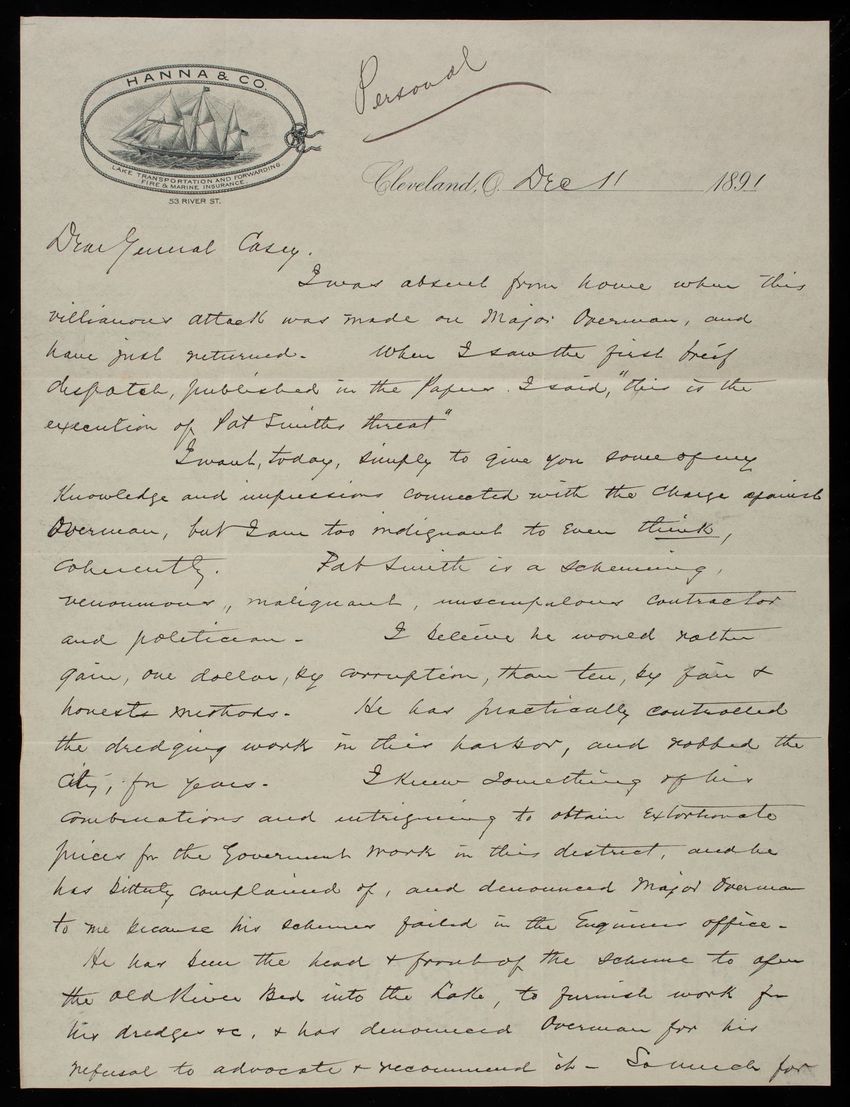 HANNA & CO.
LAKE TRANSPORTATION AND FORWARDING
FIRE & MARINE INSURANCE
53 RIVER ST.
Personal
Cleveland, O. Dec 11 1891
Dear General Casey.
I was absent from home when this
villianous attack was made on Major Overman, and
have just returned - When I saw the first breif
dispatch, published in the Papers. I said, "this is the
execution of Pat Smiths threat"
I want, today, simply to give you some of my
Knowledge and impressions connected with the charge against
Overman, but I am too indignant to even think,
coherently. Pat Smith is a scheming,
venoumous, malignant, unscrupulous contractor
and politician - I beleive he would rather
gain, one dollar, by corruption, than ten, by fair &
honests methods - He has practically controlled
the dredging work in this harbor, and robbed the
City, for years - I knew something of his
combinations and intriguing to obtain extortionate
prices for the Goverment work in this district, and he
has bitterly complained of, and denounced Major Overman
to me because his schemes failed in the Engineers office -
He has been the head & front of the scheme to open
the old River Bed into the Lake, to furnish work for
his dredges &c, & has denounced Overman for his
refusal to advocate & recommend it - So much for